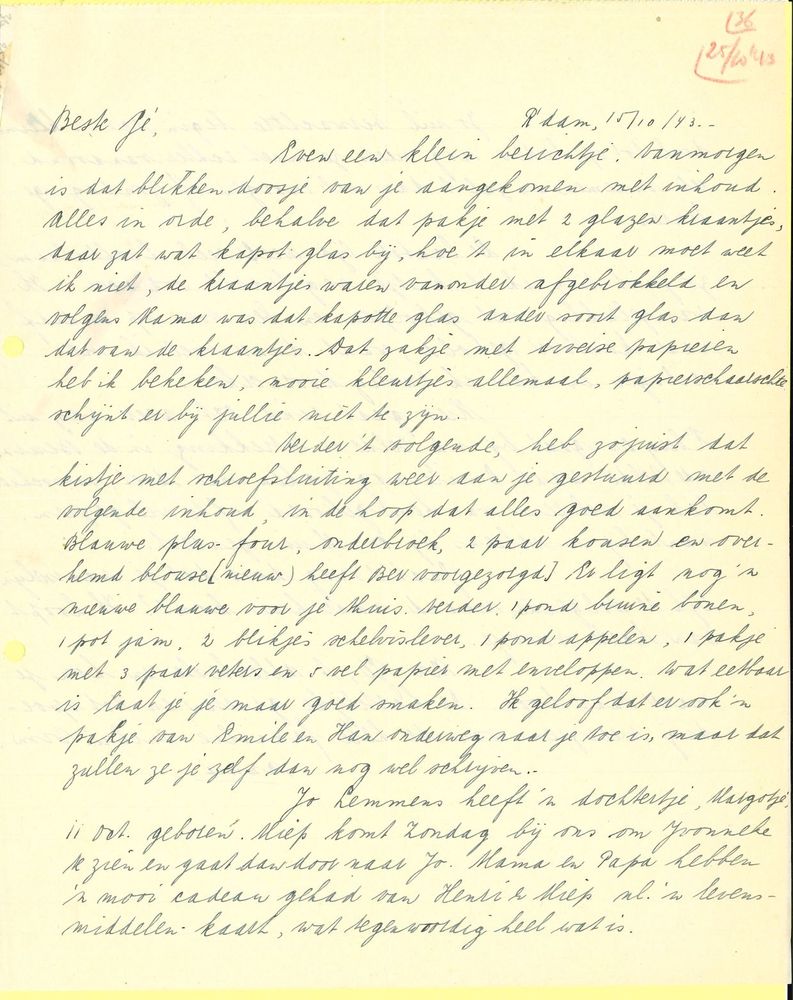 136
25/10 '43
Beste Jé, R'dam, 15/10/43.-
Even een klein berichtje. Vanmorgen
is dat blikken doosje van je aangekomen met inhoud.
Alles in orde, behalve dat pakje met 2 glazen kraantjes,
daar zat wat kapot glas bij, hoe 't in elkaar moet weet
ik niet, de kraantjes waren vanonder afgebrokkeld en
volgens Mama was dat kapotte glas ander soort glas dan
dat van de kraantjes. Dat zakje met diverse papieren
heb ik bekeken, mooie kleurtjes allemaal, papierschaarschte
schijnt er bij jullie niet te zijn.
Verder 't volgende, heb zojuist dat
kistje met schroefsluiting weer aan je gestuurd met de
volgende inhoud, in de hoop dat alles goed aankomt.
Blauwe plus-four, onderbroek, 2 paar kousen en over-
hemd blouse [(nieuw) heeft Ber voorgezorgd] Er ligt nog 'n
nieuwe blauwe voor je thuis. Verder, 1 pond bruine bonen,
1 pot jam, 2 blikjes schelvislever, 1 pond appelen, 1 pakje
met 3 paar veters en 5 vel papier met enveloppen. Wat eetbaar
is laat je je maar goed smaken. Ik geloof dat er ook 'n
pakje van Emile en Han onderweg naar je toe is, maar dat
zullen ze je zelf dan nog wel schrijven..
Jo Lemmens heeft 'n dochtertje, Margotje,
11 Oct. geboren. Miep komt Zondag bij ons om Yvonneke
te zien en gaat dan door naar Jo. Mama en Papa hebben
'n mooi cadeau gehad van Henri & Miep nl. 'n levens-
middelen-kaart, wat tegenwoordig heel wat is.